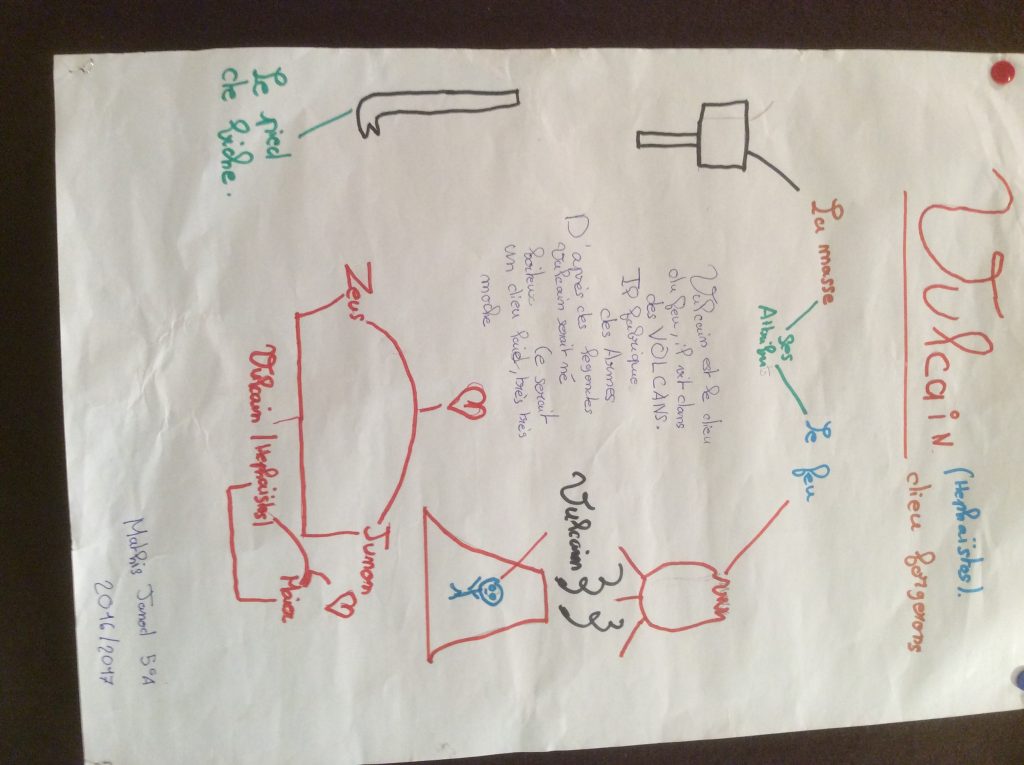 Vulcain
(Hephaïstos).
dieu forgerons
La masse
ses
Attributs
Le feu
Vulcain est le dieu
du feu, il vit dans
des VOLCANS.
Il fabrique
des Armes
D'après des légendes
Vulcain serait né
boiteux. Ce serait
un dieu laid, très très
moche
Vulcain
Le pied
de biche.
Zeus
Junon
Vulcain (Hephaïstos)
Mathis 5°A
2016/2017